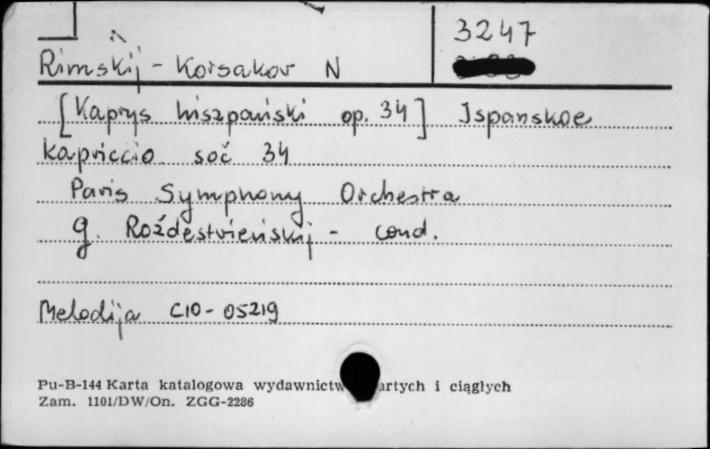 3247
Rimskij - Korsakov N
[Kaprys hiszpański op. 34] Ispanskoe
kapriccio soč 34
Paris Symphony Orchestra
g. Roźdestvieńskij - cond.
Melodija C10-05219
Pu-B-144 Karta katalogowa wydawnictw artych i ciągłych
Zam. 1101/DW/On. ZGG-2286